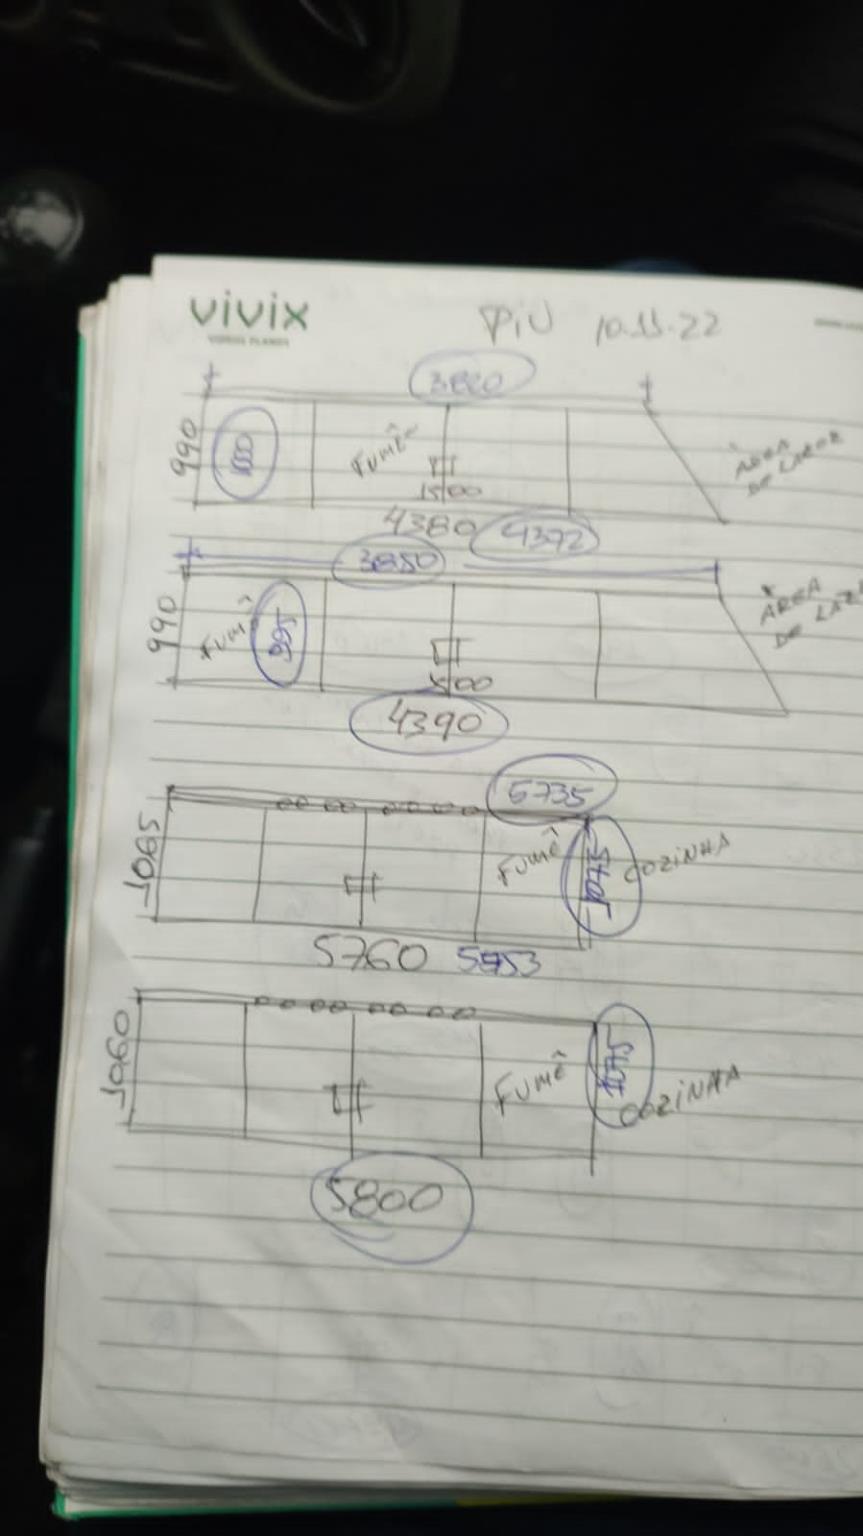 vivix
VIDROS PLANOS
PiU 10.11.22
3820
990
1000
FUMÊ
1500
ÁREA
DE LAZER
4380 4372
3850
990
FUMÊ
995
1500
ÁREA
DE LAZE
4390
5735
1065
FUMÊ
COZINHA
5760 5753
1060
FUMÊ
1075
COZINHA
5800